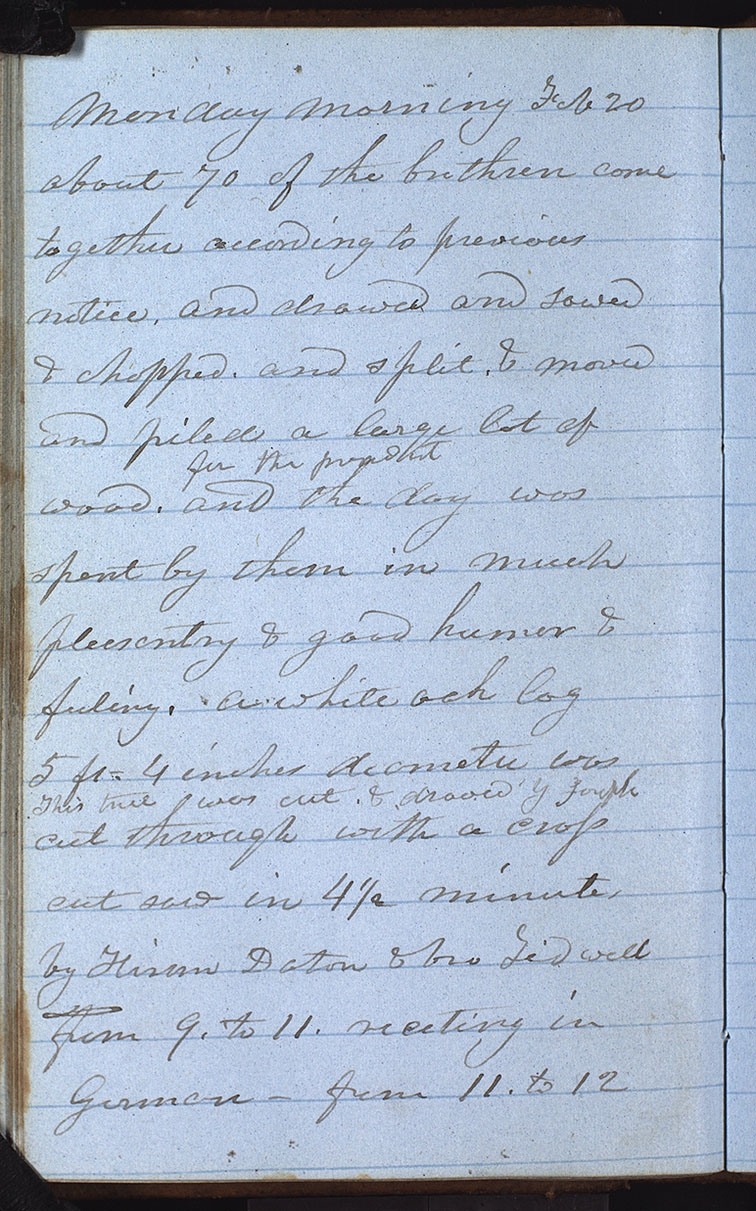 Monday morning Feb 20
about 70 of the brethren come
together according to previous
notice, and drawed and sawed
& chopped. and split, & moved
and piled a large lot of
for the president
wood. and the day was
spent by them in much
pleesentry & good humor &
feeling. a white oak log
5 ft= 4 inches diameter was
This tree was cut. & drawed by Joseph
cut through with a cross
cut saw in 4½ minute,
by Hiram Daton & bro Tidwell
from 9. to 11. reciting in
German — from 11. to 12